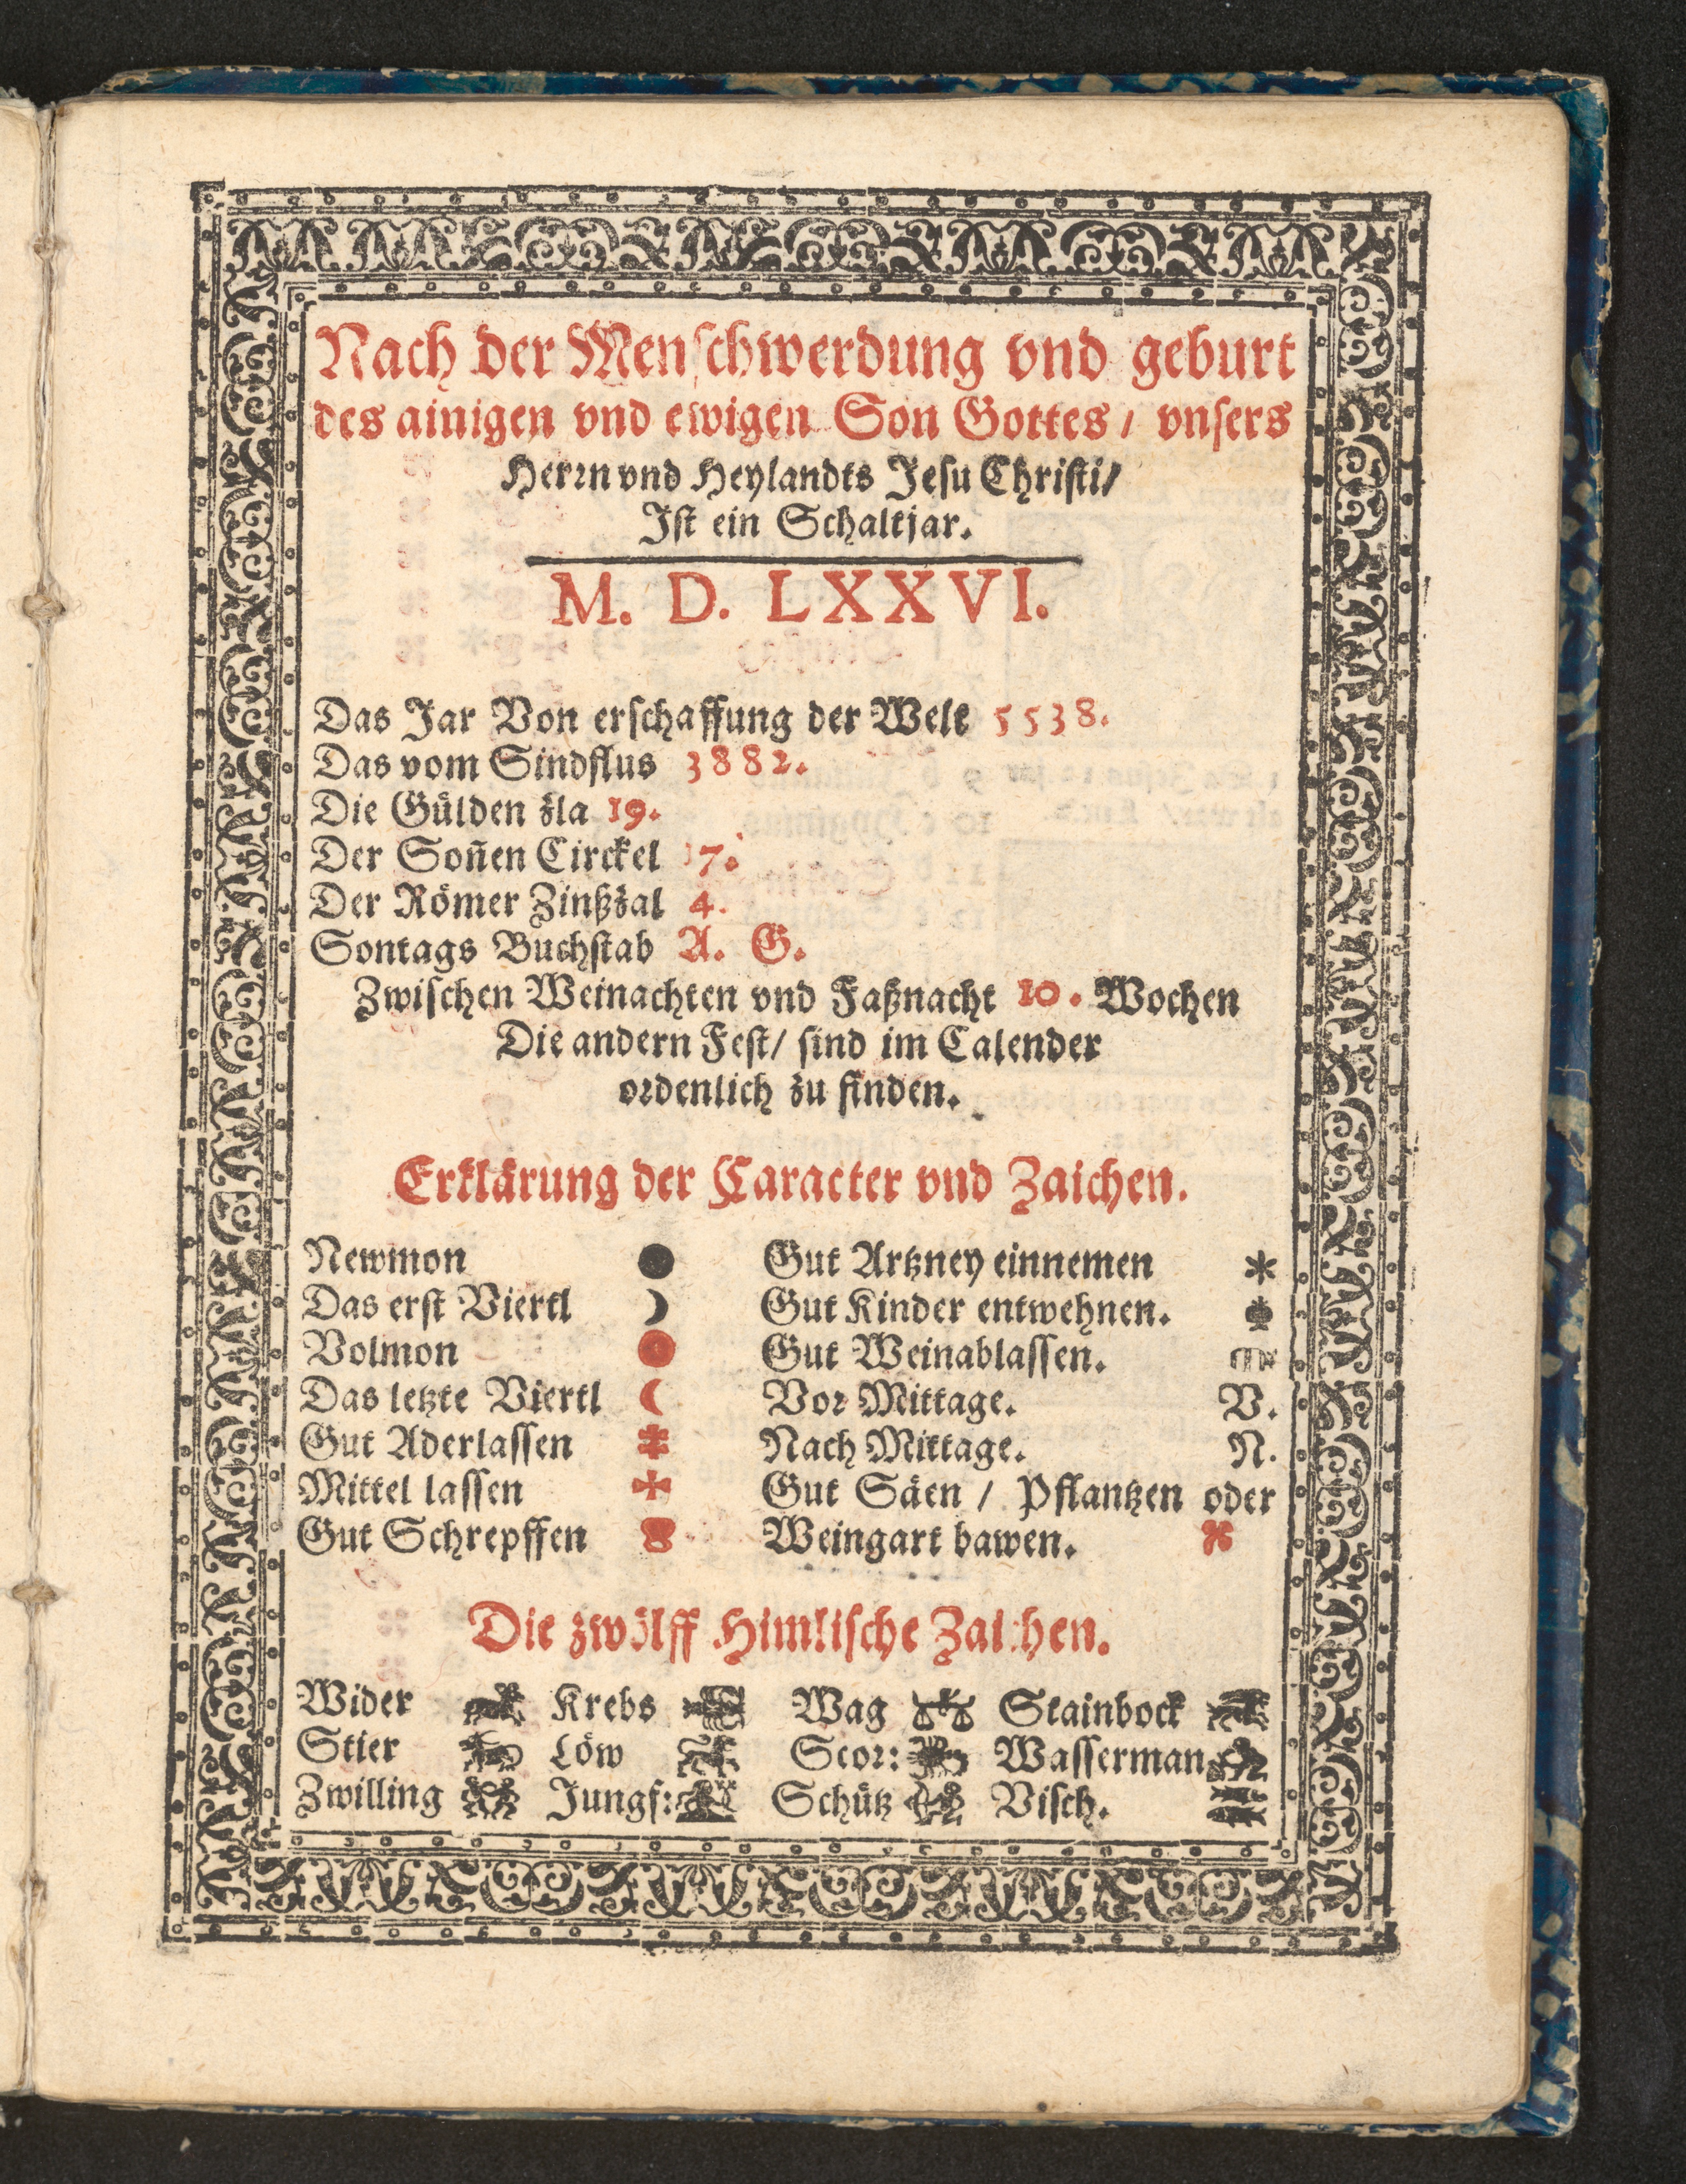 Nach der Menschwerdung vnd geburt
des ainigen vnd ewigen Son Gottes / vnsers
Herrn vnd Heylandts Jesu Christi/
Ist ein Schaltjar.
M. D. LXXVI.
Das Jar Von erschaffung der Welt 5538.
Das vom Sindflus 3882.
Die Gülden zla 19.
Der Soñen Circkel 17.
Der Römer Zinßzal 4.
Sontags Buchstab A. G.
Zwischen Weinachten vnd Faßnacht 10. Wochen
Die andern Fest/ sind im Calender
ordenlich zu finden.
Erklärung der Caracter vnd Zaichen.
Newmon ● Gut Artzney einnemen *
Das erst Viertl ☽ Gut Kinder entwehnen.
Volmon Gut Weinablassen.
Das letzte Viertl ☾ Vor Mittage. V.
Gut Aderlassen Nach Mittage. N.
Mittel lassen Gut Säen / Pflantzen oder
Gut Schrepffen Weingart bawen.
Die zwölff Himlische Zaichen.
Wider Krebs Wag Stainbock
Stier Löw Scor: Wasserman
Zwilling Jungf: Schütz Visch.